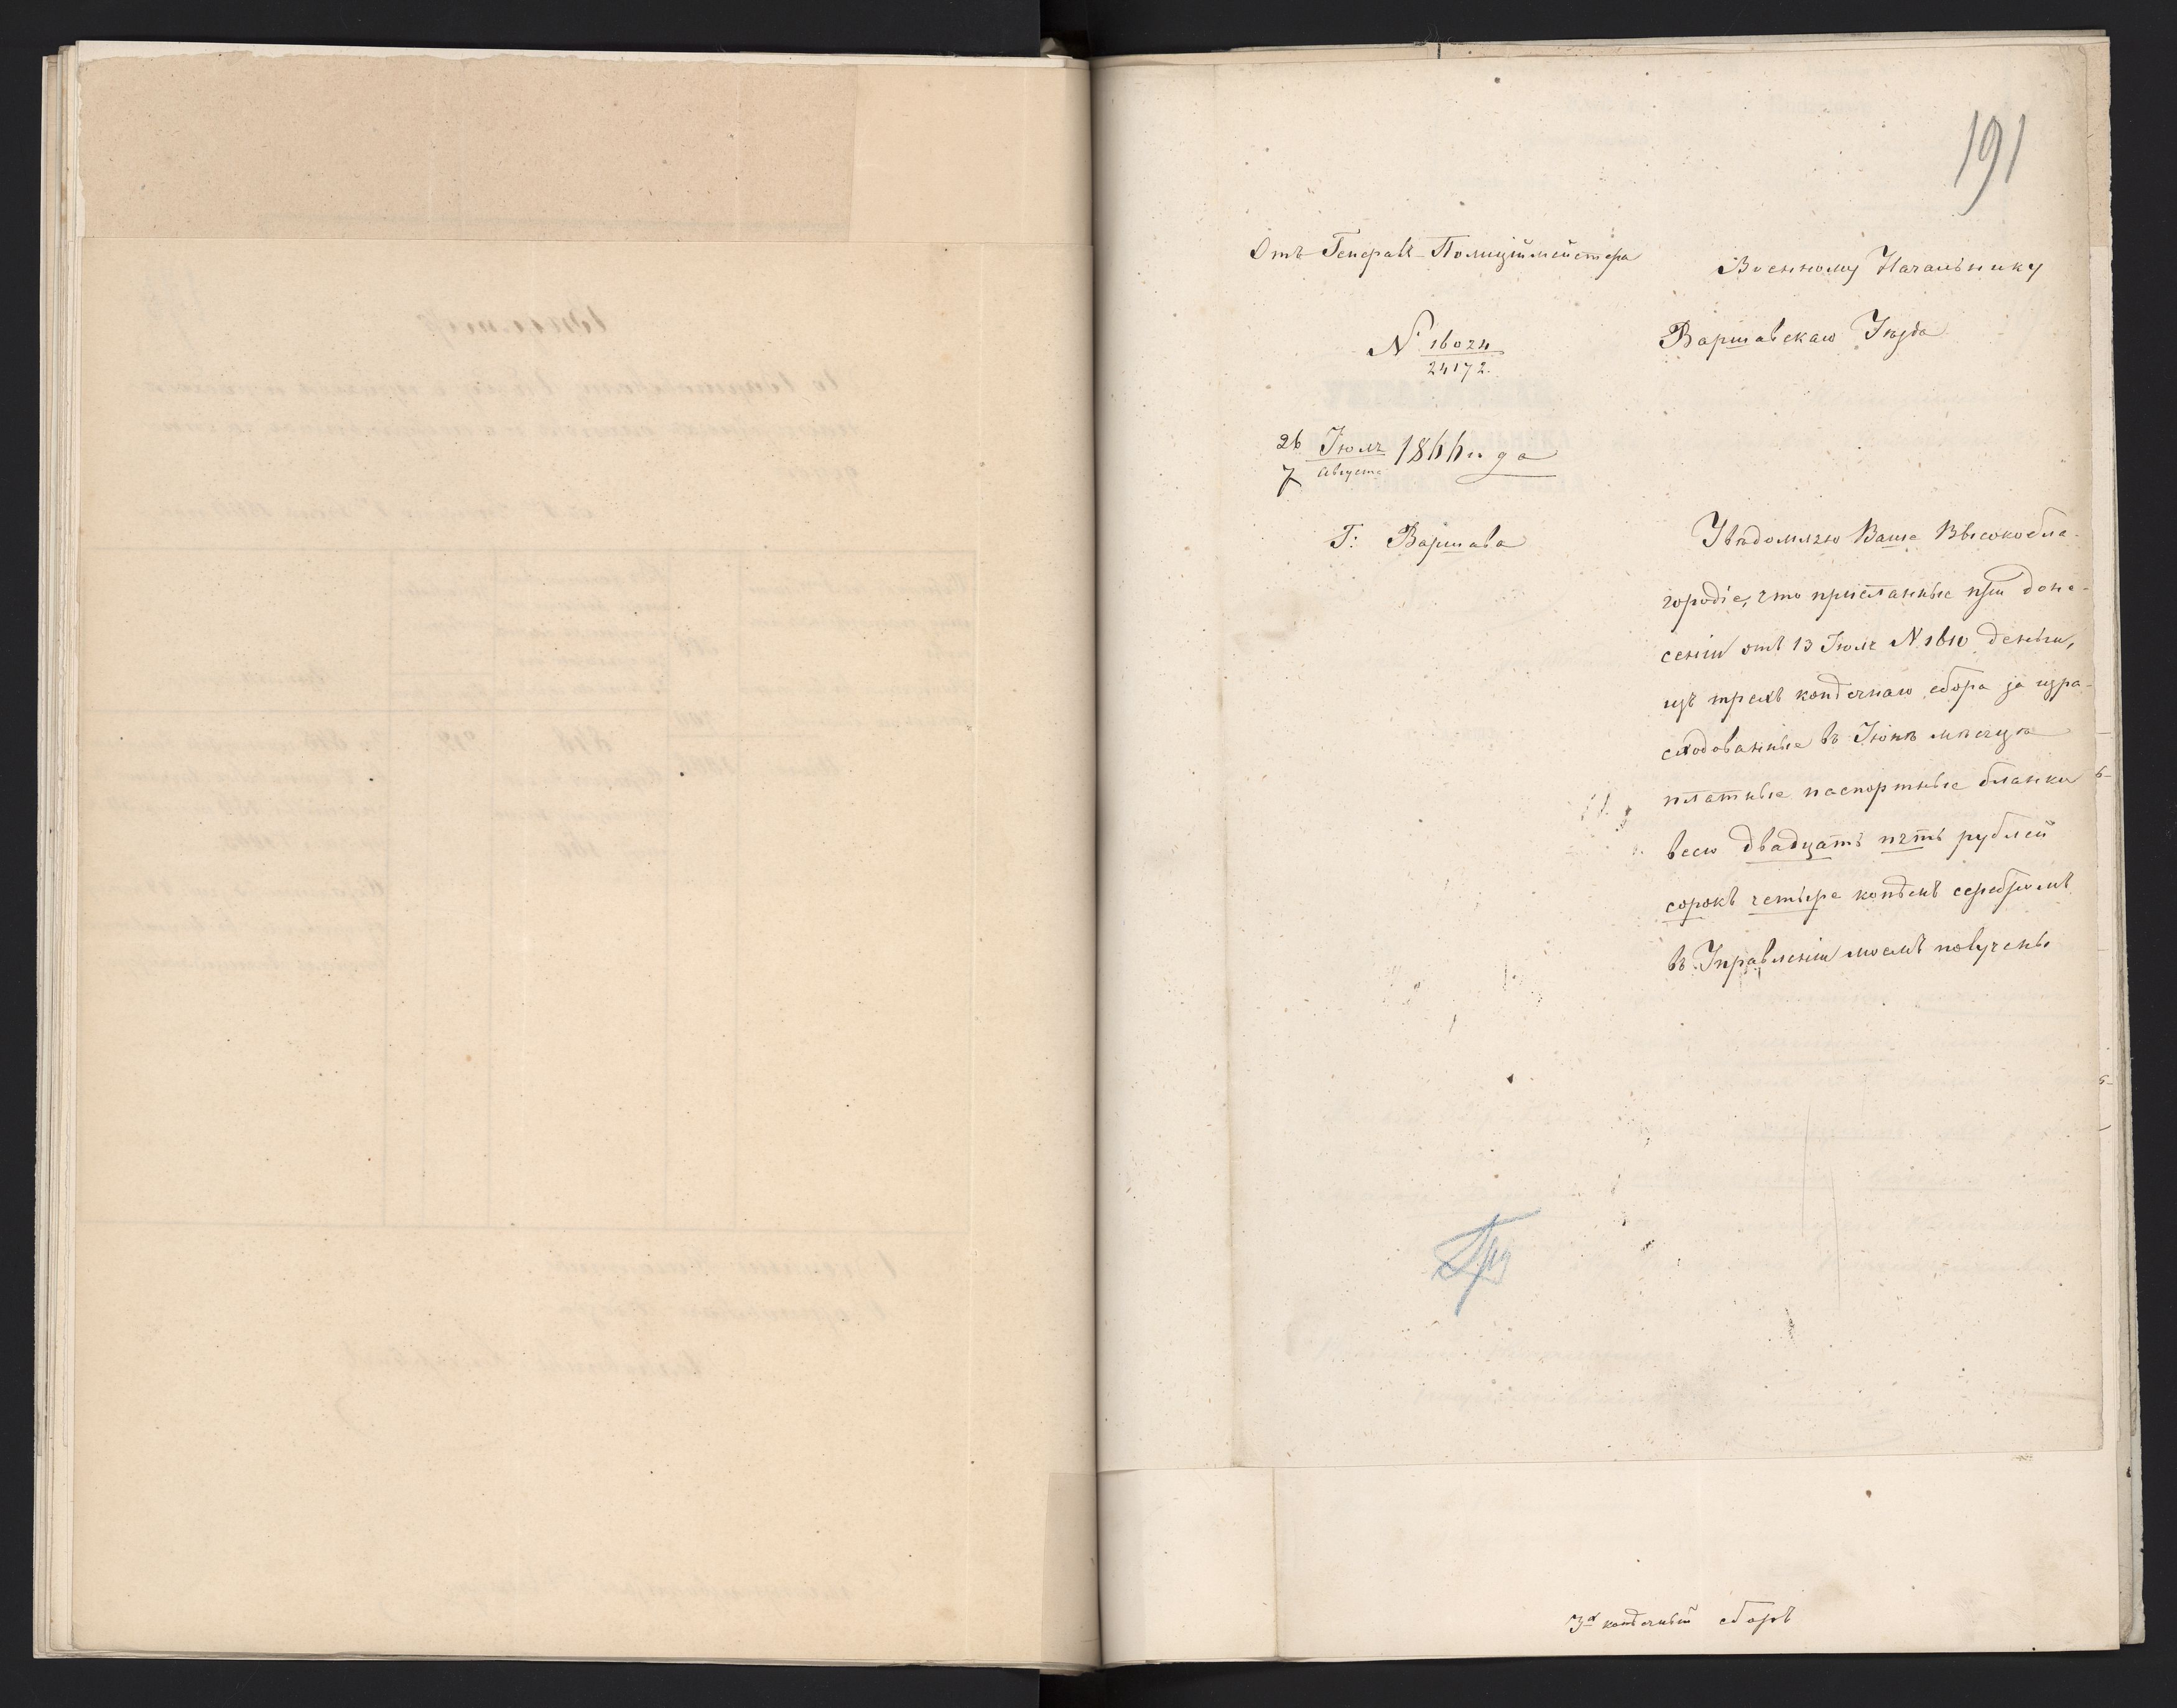 191
Отъ Генералъ-Полиціймейстера
№ 16024
24172.
26 Іюля
7 Августа 1866 года
Г: Варшава
Военному Начальнику
Варшавскаго Уѣзда
Увѣдомляю Ваше Высокобла-
городіе, что присланные при доне-
сеніи отъ 13 Іюля № 1610 деньги,
изъ трехъ копѣечнаго сбора за изра-
сходованные въ Іюнѣ мѣсяцѣ
платные паспортные бланки
всего двадцать пять рублей
сорокъ четыре копѣекъ серебромъ
въ Управленіи моемъ получены
3х копѣечный сборъ